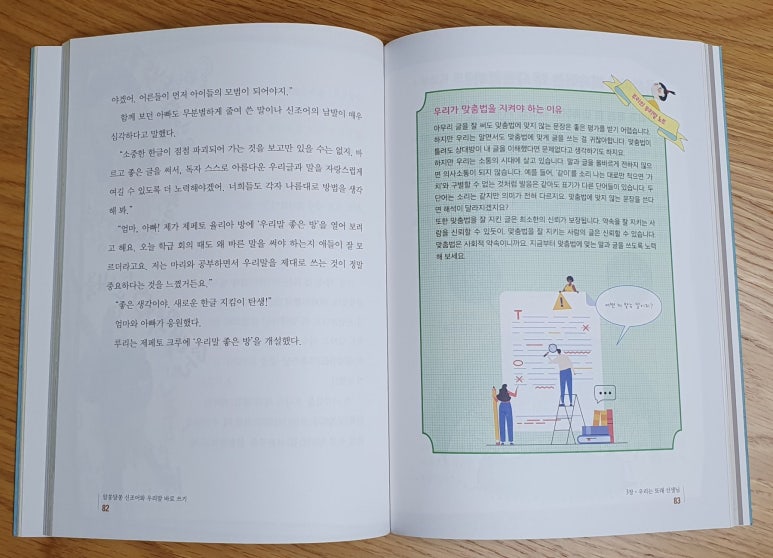 야겠어. 어른들이 먼저 아이들의 모범이 되어야지."
함께 보던 아빠도 무분별하게 줄여 쓴 말이나 신조어의 남발이 매우
심각하다고 말했다.
"소중한 한글이 점점 파괴되어 가는 것을 보고만 있을 수는 없지. 바
르고 좋은 글을 써서, 독자 스스로 아름다운 우리글과 말을 자랑스럽게
여길 수 있도록 더 노력해야겠어. 너희들도 각자 나름대로 방법을 생각
해 봐."
"엄마, 아빠! 제가 제페토 율리아 방에 '우리말 좋은 방'을 열어 보려
고 해요. 오늘 학급 회의 때도 왜 바른 말을 써야 하는지 애들이 잘 모
르더라고요. 저는 마리와 공부하면서 우리말을 제대로 쓰는 것이 정말
중요하다는 것을 느꼈거든요."
"좋은 생각이야. 새로운 한글 지킴이 탄생!"
엄마와 아빠가 응원했다.
루리는 제페토 크루에 '우리말 좋은 방'을 개설했다.
알쏭달쏭 신조어와 우리말 바로 쓰기
82
우리말 노트
우리가 맞춤법을 지켜야 하는 이유
아무리 글을 잘 써도 맞춤법에 맞지 않는 문장은 좋은 평가를 받기 어렵습니다.
하지만 우리는 알면서도 맞춤법에 맞게 글을 쓰는 걸 귀찮아합니다. 맞춤법이
틀려도 상대방이 내 글을 이해했다면 문제없다고 생각하기도 하지요.
하지만 우리는 소통의 시대에 살고 있습니다. 말과 글을 올바르게 전하지 않으
면 의사소통이 되지 않습니다. 예를 들어, '같이'를 소리 나는 대로만 적으면 '가
치'와 구별할 수 없는 것처럼 발음은 같아도 표기가 다른 단어들이 있습니다. 두
단어는 소리는 같지만 의미가 전혀 다르지요. 맞춤법에 맞지 않는 문장을 쓴다
면 해석이 달라지겠지요?
또한 맞춤법을 잘 지킨 글은 최소한의 신뢰가 보장됩니다. 약속을 잘 지키는 사
람을 신뢰할 수 있듯이, 맞춤법을 잘 지키는 사람의 글은 신뢰할 수 있습니다.
맞춤법은 사회적 약속이니까요. 지금부터 맞춤법에 맞는 말과 글을 쓰도록 노력
해 보세요.
T
3장 · 우리는 또래 선생님
83